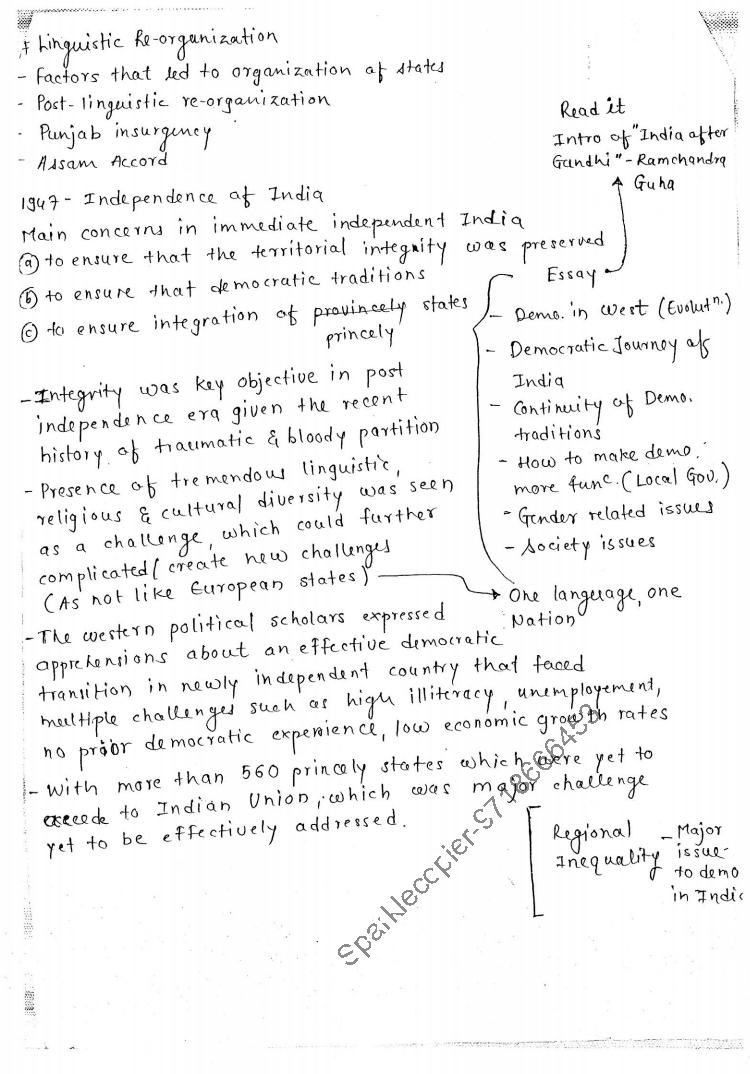 * Linguistic Re-organization
- Factors that led to organization of states
- Post-linguistic re-organization
- Punjab insurgency
- Assam Accord
Read it
Intro of "India after
Gandhi" - Ramchandra
Guha
1947 - Independence of India
Main concerns in immediate independent India
(a) to ensure that the territorial integrity was preserved
(b) to ensure that democratic traditions
(c) to ensure integration of provincely states
princely
Essay
- Demo. in west (Evolutn.)
- Democratic Journey of
India
- Continuity of Demo.
traditions
- How to make demo.
more func. (Local Gov.)
- Gender related issues
- Society issues
- Integrity was key objective in post
independence era given the recent
history of traumatic & bloody partition
- Presence of tremendous linguistic,
religious & cultural diversity was seen
as a challenge, which could further
complicated/create new challenges
(As not like European states)
One language, one
Nation
- The western political scholars expressed
apprehensions about an effective democratic
transition in newly independent country that faced
multiple challenges such as high illiteracy, unemployement,
no prior democratic experience, low economic growth rates
- With more than 560 princely states which were yet to
accede to Indian Union, which was major challenge
yet to be effectively addressed.
Regional
Inequality
- Major
issue
to demo
in India